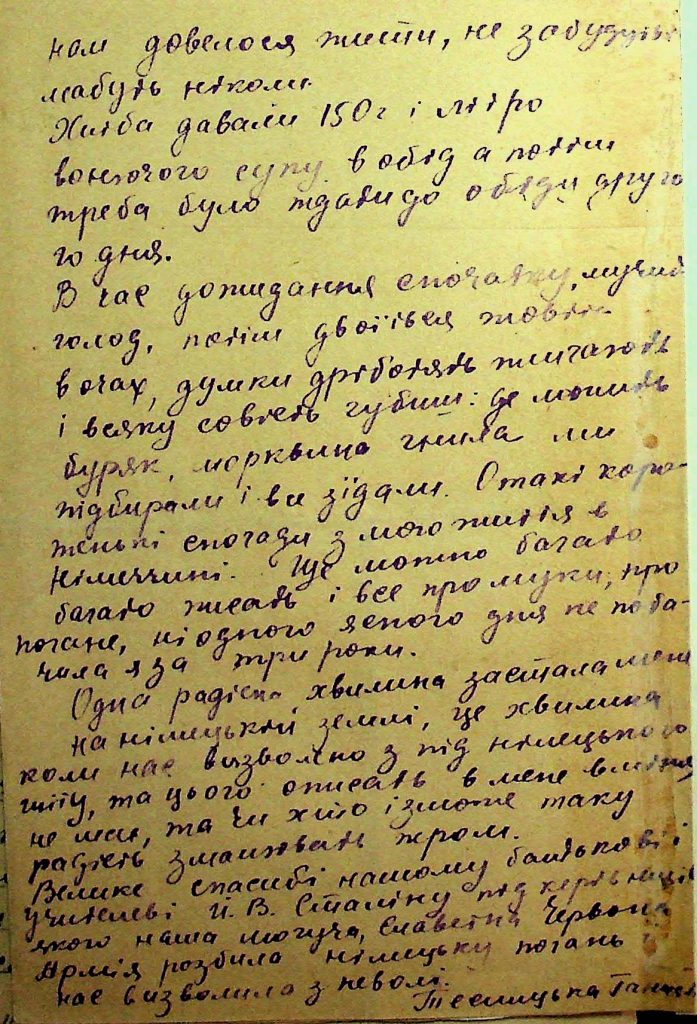 нам довелося жити, не забудуться
мабуть ніколи.
Хліба давали 150 г і літро
вонючого супу в обід а потім
треба було ждати до обіди друго
го дня.
В час дожидання спочатку, мучив
голод, потім двоїться жовтіє
в очах, думки дріботять
і всяку совість губиш: де
буряк, морквина гнила ми
підбирали і все з'їдали. Отакі коро-
женькі спогади з мого життя в
Німеччині. Ще можно багато
багато писать і все про муки, про
погане, ні одного ясного дня не поба-
чила я за три роки.
Одна радісна хвилина застала мене
на німецькій землі, це хвилина
коли нас визволено з під німецького
гніту, та цього описать в мене вміння
не має, та чи хто ізможе таку
радість змалювать пером.
Велике спасибі нашому батькові і
учителеві Й. В. Сталіну під керівництвом
якого наша могуча, славетна Червона
Армія розбила німецьку погань і
нас визволила з неволі.
Теслицька